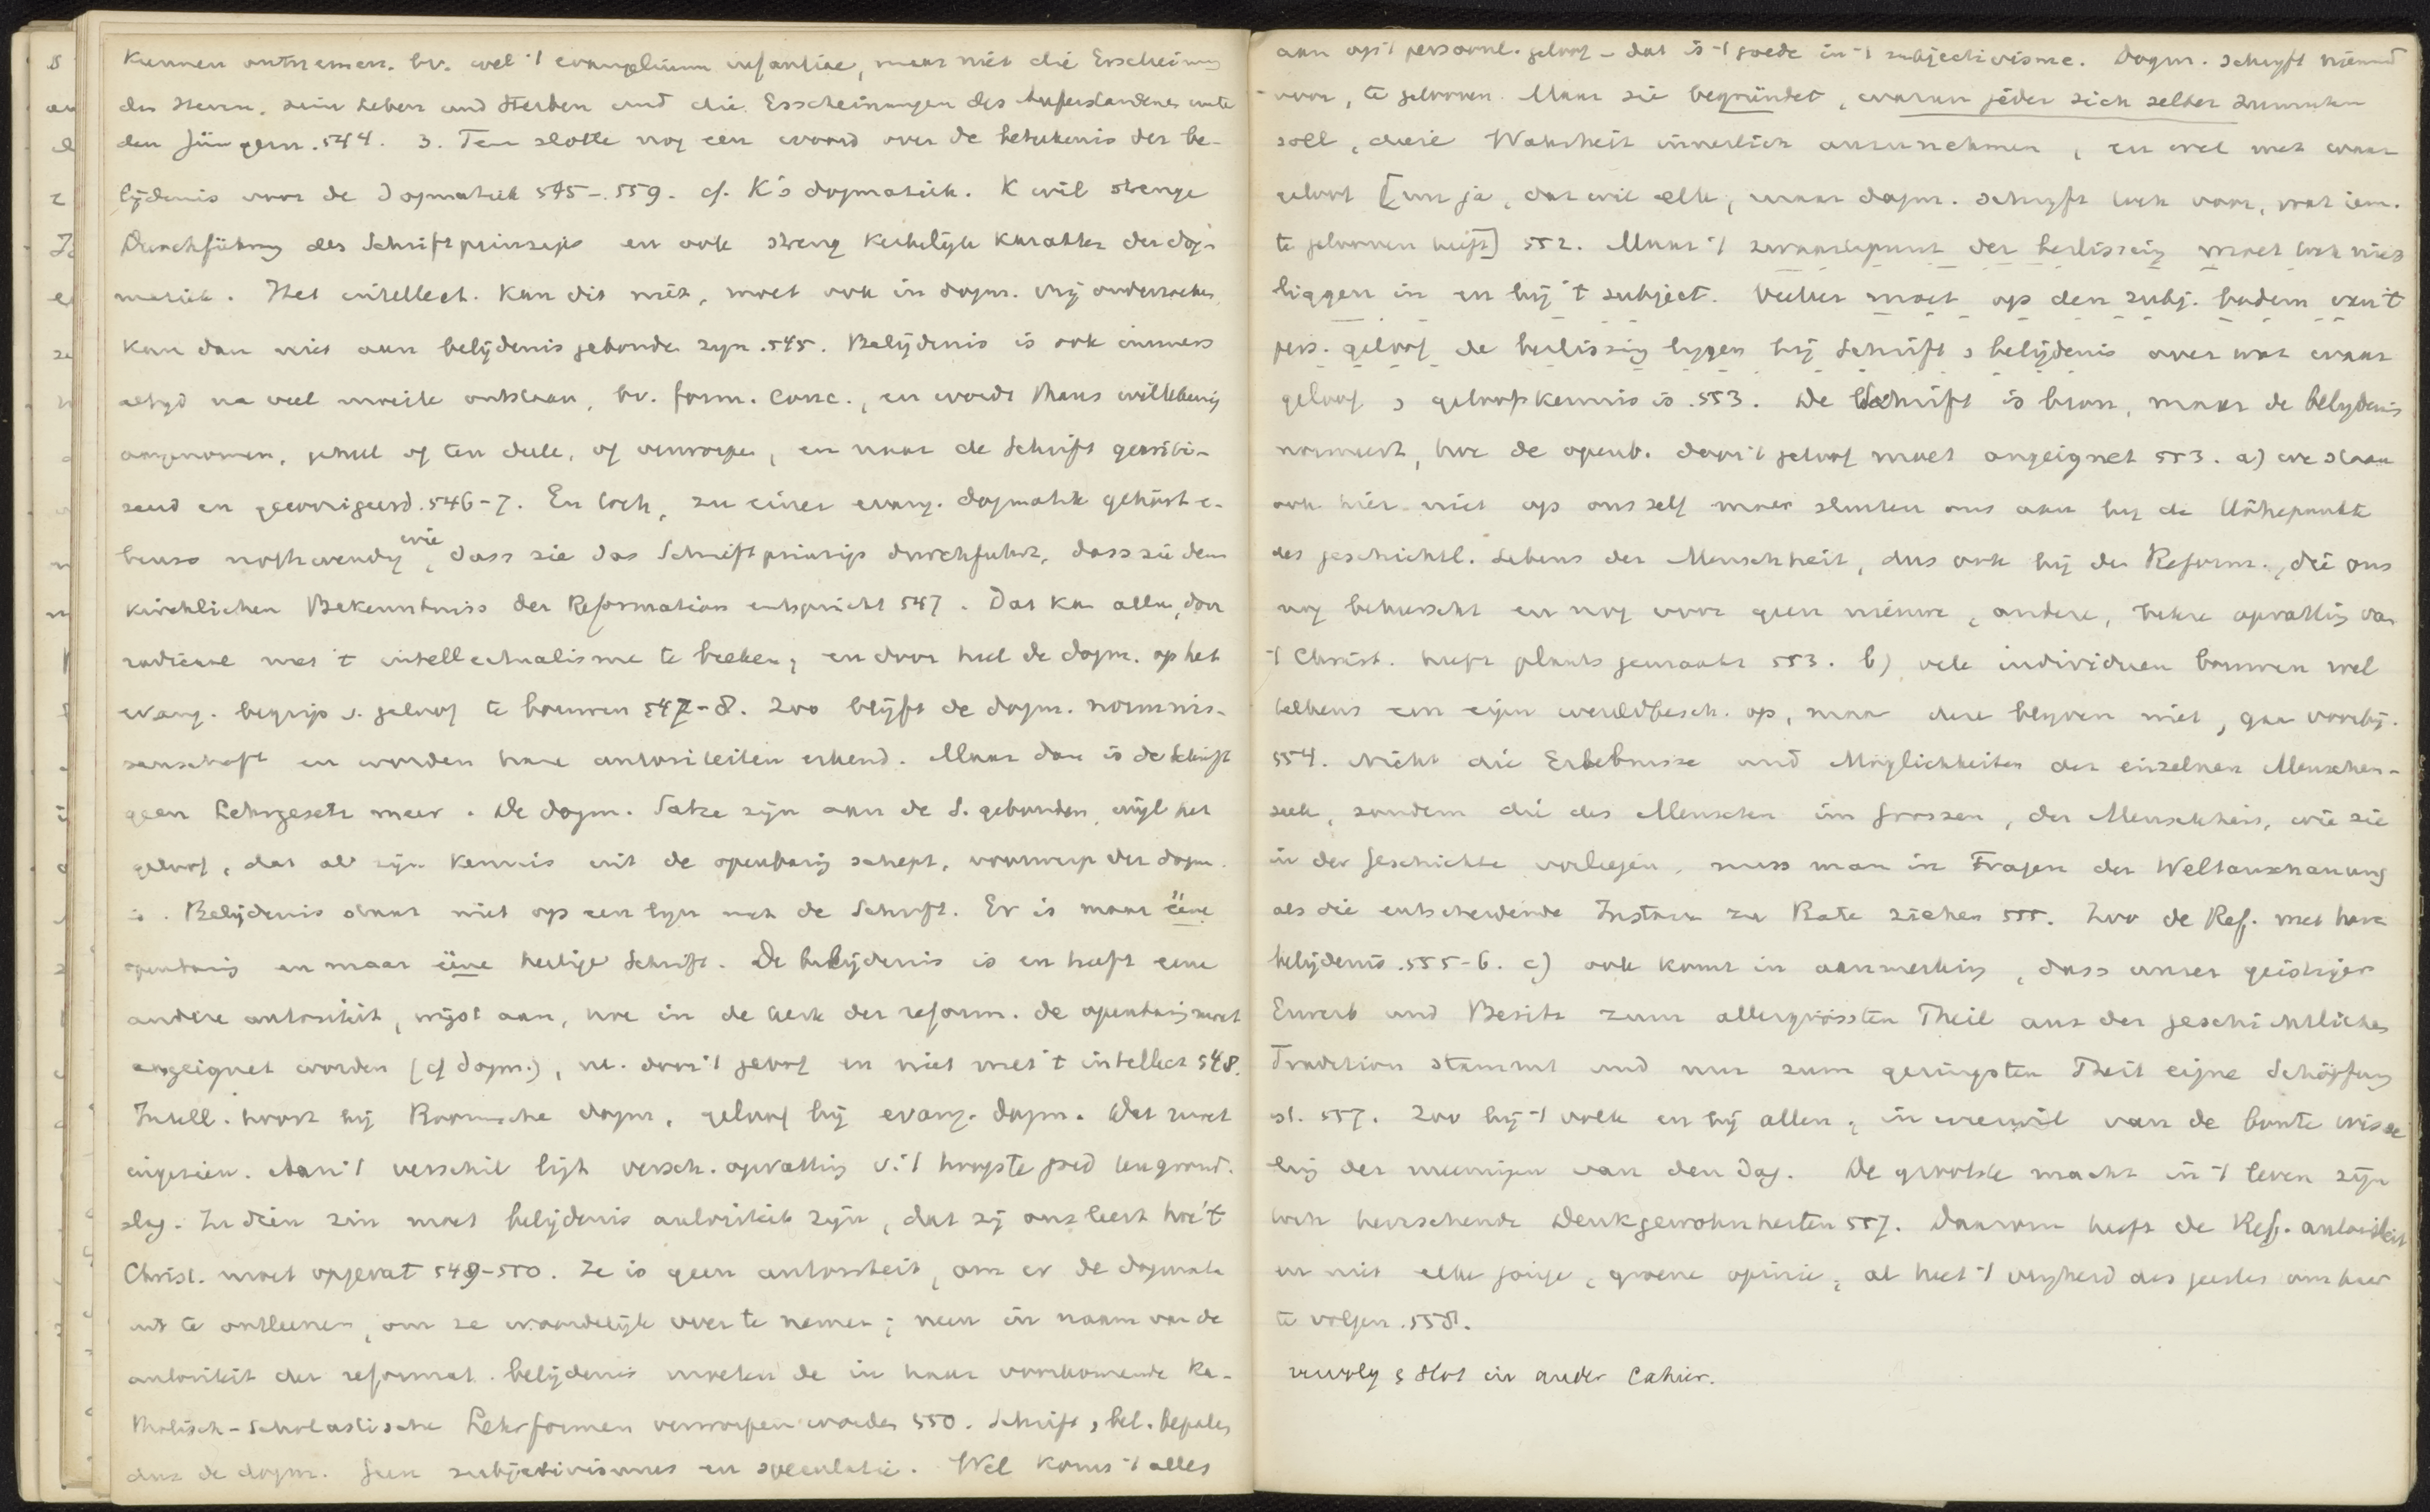 kunnen ontnemen. bv. wel 't evangelium infantiae, maar niet die Erscheinung
des Herrn, sein Leben und Sterben und die Erscheinungen des Auferstandenen unter
den Jüngern. 544. 3. Ten slotte nog een woord over de beteekenis der be-
lijdenis voor de Dogmatiek 545-559. cf. K's dogmatiek. K wil strenge
Durchführung des Schriftprinzips en ook streng kerkelijk karakter der dog-
matiek. Het intellect. kan dit niet, moet ook in dogm. vrij onderzoeken
kan dan niet aan belijdenis gebonden zijn. 545. Belijdenis is ook immers
altijd na veel moeite ontstaan, bv. form. conc., en wordt thans willekeurig
aangenomen, geheel of ten deele, of verworpen, en naar de Schrift
en gecorrigeerd. 546-7. En toch, zu einer evang. dogmatik gehört e-
benso nothwendig wie, dass sie das Schriftprinzip durchführt, dass sie dem
kirchlichen Bekenntniss der Reformation entspricht 547. Dat kan alleen, door
radicaal met 't intellectualisme te breken, en door heel de dogm. op het
evang. begrip v. geloof te bouwen 547-8. Zoo blijft de dogm. normwis-
senschaft en worden hare autoriteiten erkend. Maar dan is de Schrift
geen Lehrgesetz meer. De dogm. Sätze zijn aan de S. gebonden, wijl het
geloof, dat al zijn kennis uit de openbaring schept, voorwerp der dogm.
is. Belijdenis staat niet op een lijn met de Schrift. Er is maar ééne
openbaring en maar ééne heilige Schrift. De belijdenis is en heeft eene
andere autoriteit, wijst aan, hoe in de kerk der reform. de openbaring moet
angeeignet worden (cf dogm.), nl. door 't geloof en niet met 't intellect 548.
Intell. hoort bij Roomsche dogm., geloof bij evang. dogm. Dat moet
ingezien. Aan 't verschil ligt versch. opvatting v. 't hoogste goed ten grond-
slag. In dien zin moet belijdenis autoriteit zijn, dat zij ons leert hoe 't
Christ. moet opgevat 549-550. Ze is geen autoriteit, om er de dogmata
uit te ontleenen, om ze woordelijk over te nemen; neen in naam van de
autoriteit der reformat. belijdenis moeten de in haar voorkomende ka-
tholisch-scholastische Lehrformen verworpen worden 550. Schrift, bel. bepalen
dus de dogm. Geen subjectivismus en speculatie. Wel komt 't alles
aan op 't persoonl. geloof – dat is 't goede in 't subjectivisme. Dogm. schrijft niemand
voor, te gelooven. Maar sie begründet, warum jeder sich selber zumuthen
soll, diese Wahrheit innerlich anzunehmen, en wel met waar
geloof [nu ja, dat wil elk, maar dogm. schrijft toch voor, wat iem.
te gelooven heeft] 552. Maar 't zwaartepunt der beslissing moet toch niet
liggen in en bij 't subject. Veeleer moet op den subj. bodem van 't
pers. geloof de beslissing liggen bij Schrift & belijdenis over wat waar
geloof & geloofskennis is. 553. De Schrift is bron, maar de belijdenis
normeert, hoe de openb. door 't geloof moet angeeignet 553. a) we staan
ook hier niet op ons zelf maar sluiten ons aan bij de Höhepunkte
des geschichtl. Lebens der Menschheit, dus ook bij de Reform., die ons
nog beheerscht en nog voor geen nieuwe, andere, betere opvatting van
't Christ. heeft plaats gemaakt 553. b) vele individuen bouwen wel
telkens een eigen wereldbesch. op, maar deze blijven niet, gaan voorbij.
554. Nicht die Erlebnisse und Möglichkeiten der einzelnen Menschen-
seele, sondern die des Menschen im Grossen, der Menschheit, wie sie
in der Geschichte vorliegen, muss man in Fragen der Weltanschauung
als die entscheidende Instanz zu Rate ziehen 555. Zoo de Ref. met hare
belijdenis. 555-6. c) ook komt in aanmerking, dass unser geistiger
Erwerb und Besitz zum allergrössten Theil aus der geschichtlichen
Tradition stammt und nur zum geringsten Theil eigne Schöpfung
ist. 557. Zoo bij 't volk en bij allen, in weerwil van de bonte wisse-
ling der meeningen van den dag. De grootste macht in 't leven zijn
toch heerschende Denkgewohnheiten 557. Daarom heeft de Ref. autoriteit
en niet elke jonge, groene opinie, al heet 't vrijheid des geestes om haar
te volgen. 558.
vervolg & slot in ander cahier.